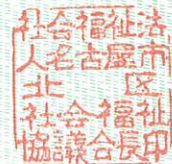 社会福祉法
人名古屋市
北区
社会福祉
協議会長印